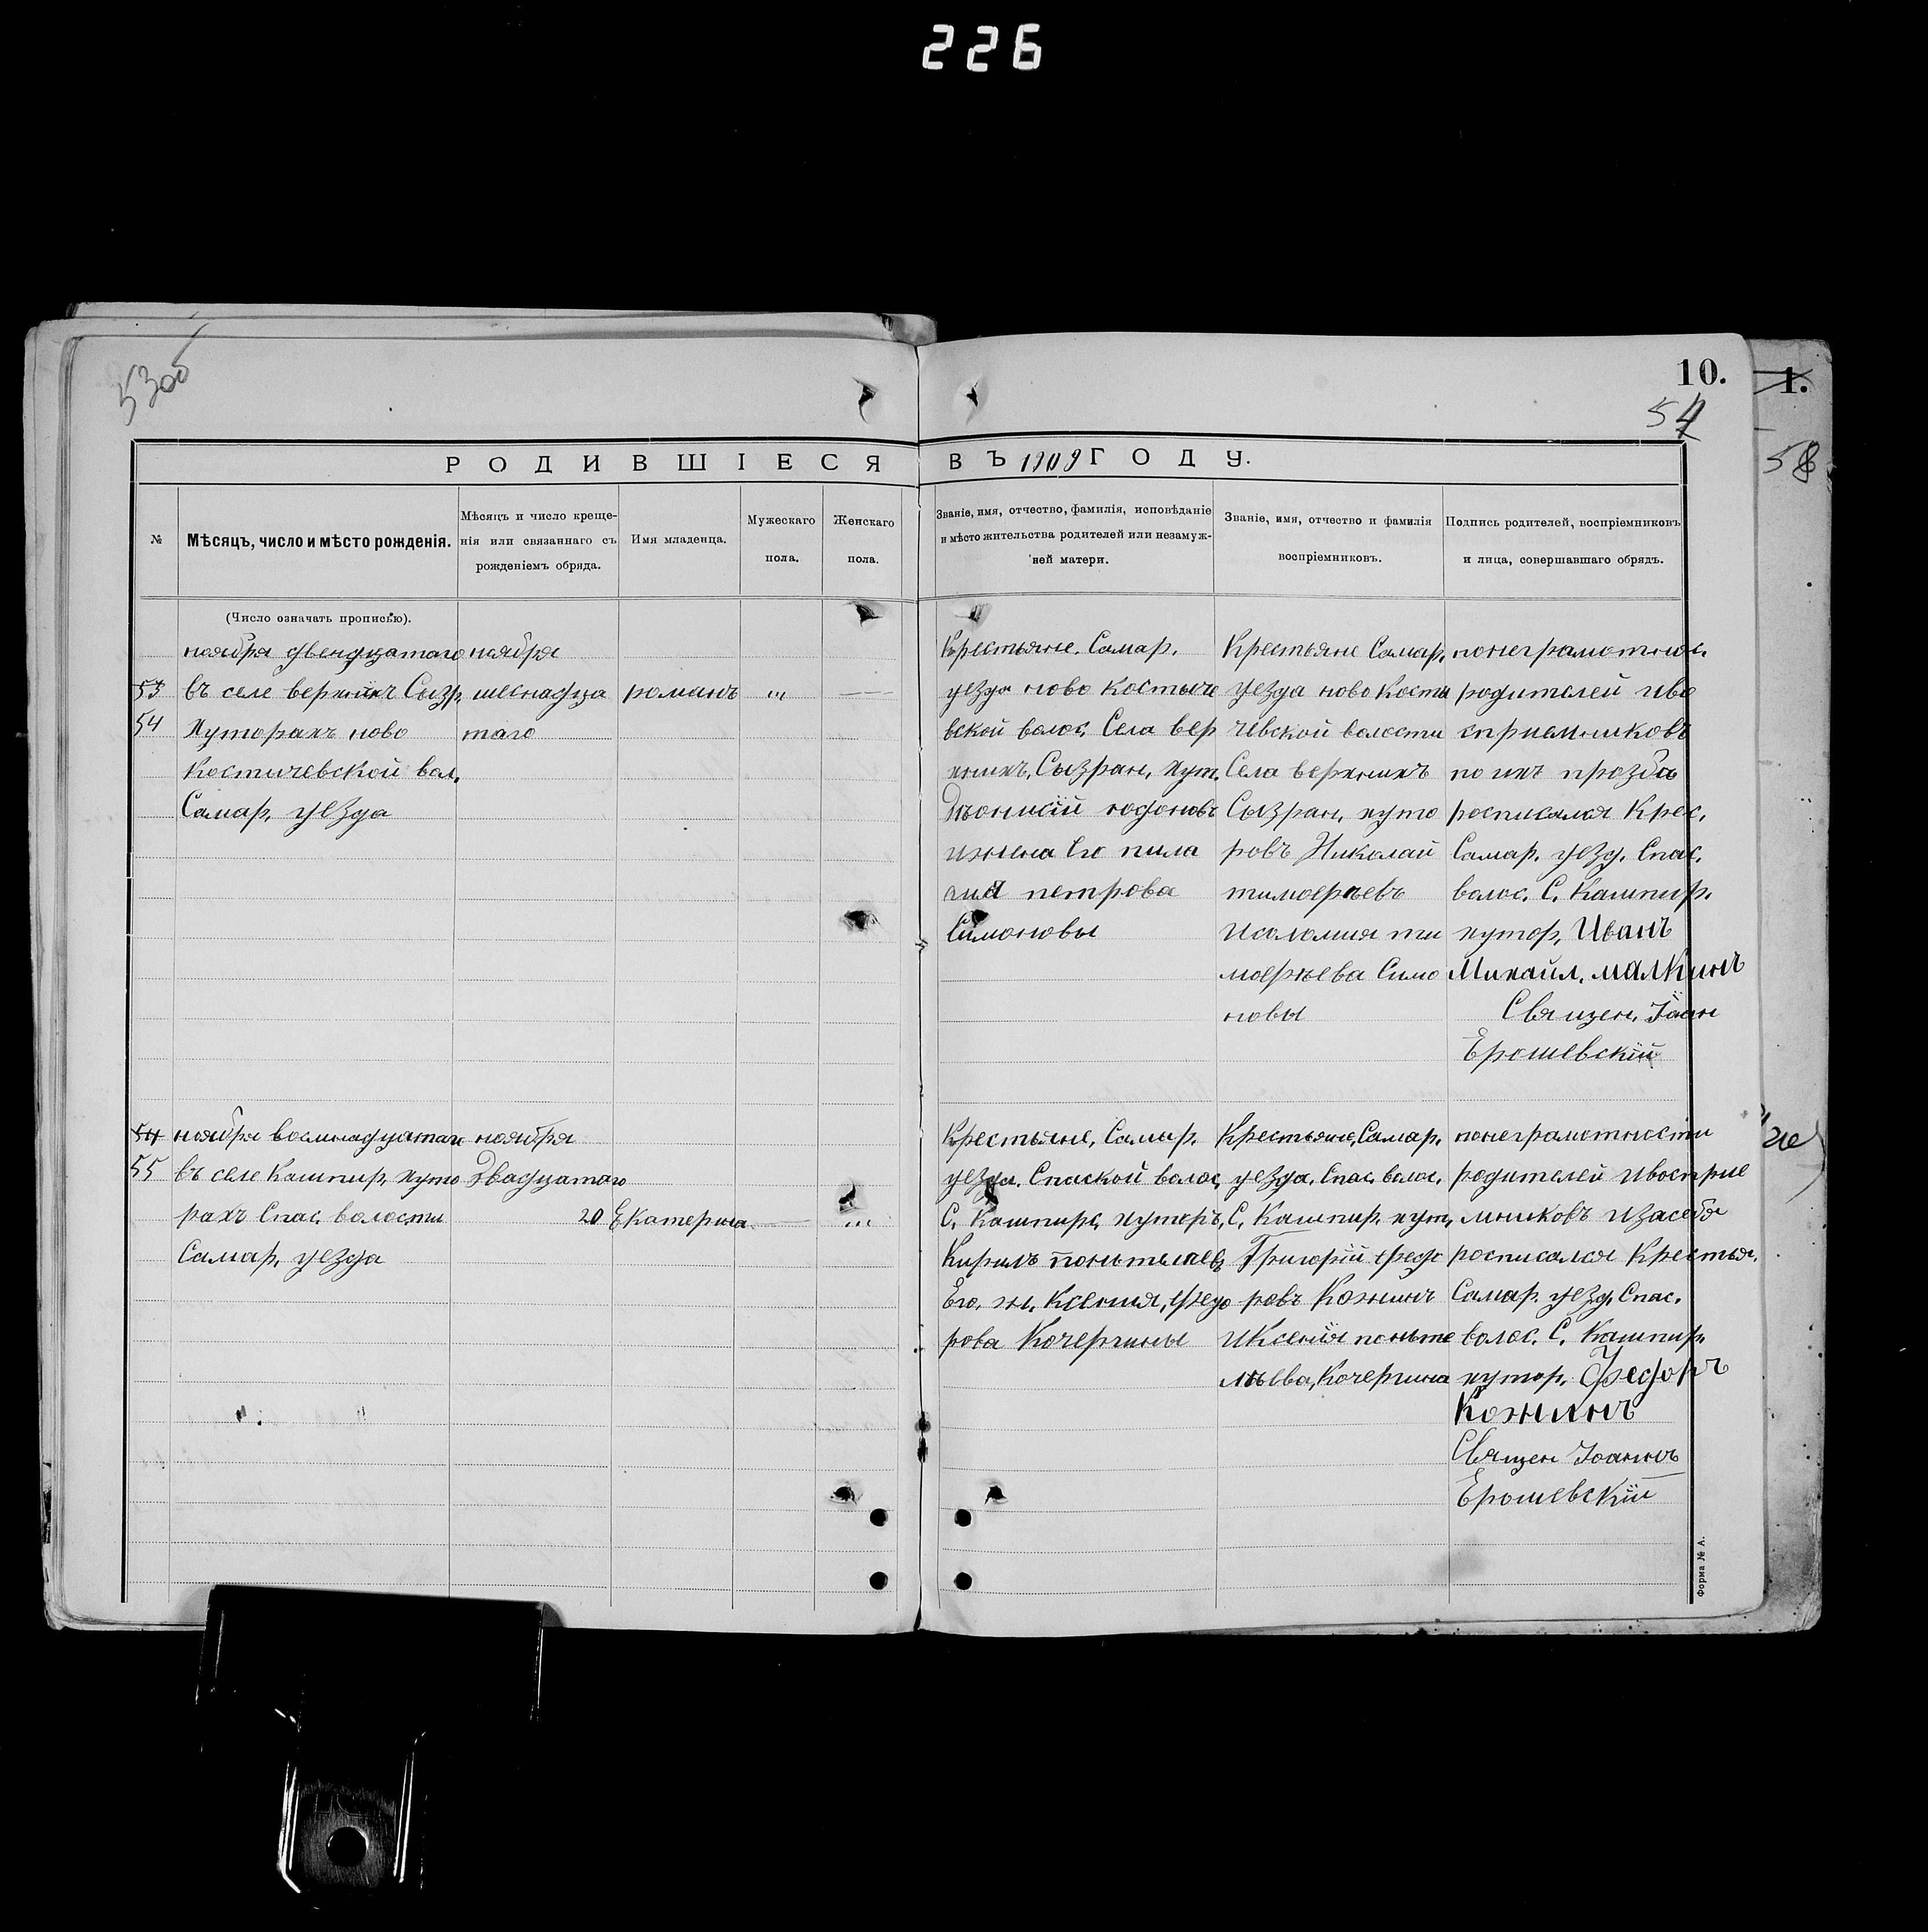 226
53об
10.
1.
54
58
РОДИВШІЕСЯ ВЪ 1909 ГОДУ.
№
Мѣсяцъ, число и мѣсто рожденія.
Мѣсяцъ и число креще-
нія или связаннаго съ
рожденіемъ обряда.
Имя младенца.
Мужескаго
пола.
Женскаго
пола.
Званіе, имя, отчество, фамилія, исповѣданіе
и мѣсто жительства родителей или незамуж-
ней матери.
Званіе, имя, отчество и фамилія
воспріемниковъ.
Подпись родителей, воспріемниковъ
и лица, совершавшаго обрядъ.
(Число означать прописью).
53
54
ноября двендцатаго
въ селе верхнихъ Сызр.
Хуторахъ ново
Костичевской вол.
Самар. уезда
ноября
шеснадца
таго
романъ
"
—
Крестьяне. Самар.
уезда ново Костыче
вской волос. Села вер
хнихъ. Сызран. хут.
ижена Его пила
гия петрова
Симоновы
Крестьяне Самар.
уезда ново Кости
чевской волости
Села верхнихъ
Сызран. хуто
ровъ Николай
тимоерьевъ
исоломия ти
моерьева Симо
новы
понеграмотнос.
родителей иво
сприемниковъ
по ихъ прозба
росписался Крес.
Самар. уезд. Спас.
волос. С. Кашпир.
хутор. Иванъ
Михаил. малкинъ
Священ. Іоан
Ерошевскій
54
55
ноября восмнадцатаго
въ селе Кашпир. хуто
рахъ Спас. волости
Самар. уезда
ноября
Двадцатаго
20
Екатерина
—
"
Крестьяне, Самар.
уезда. Спаской волос.
С. Кашпирс. хуторъ.
Его. ж. Ксения, федо
рова Кочергины
Крестьяне, Самар.
уезда. Спас. волос.
С. Кашпир. хут.
Григорій федо
ровъ Кожинъ
иКсения поньте
льева, Кочергина
понеграмотности
родителей ивосприе
мниковъ изасебя
росписался Крестья.
Самар. уезд. Спас.
волос. С. Кашпир.
хутор. Федоръ
Кожинъ
Священ Іоаннъ
Ерошевскій
Форма № А.